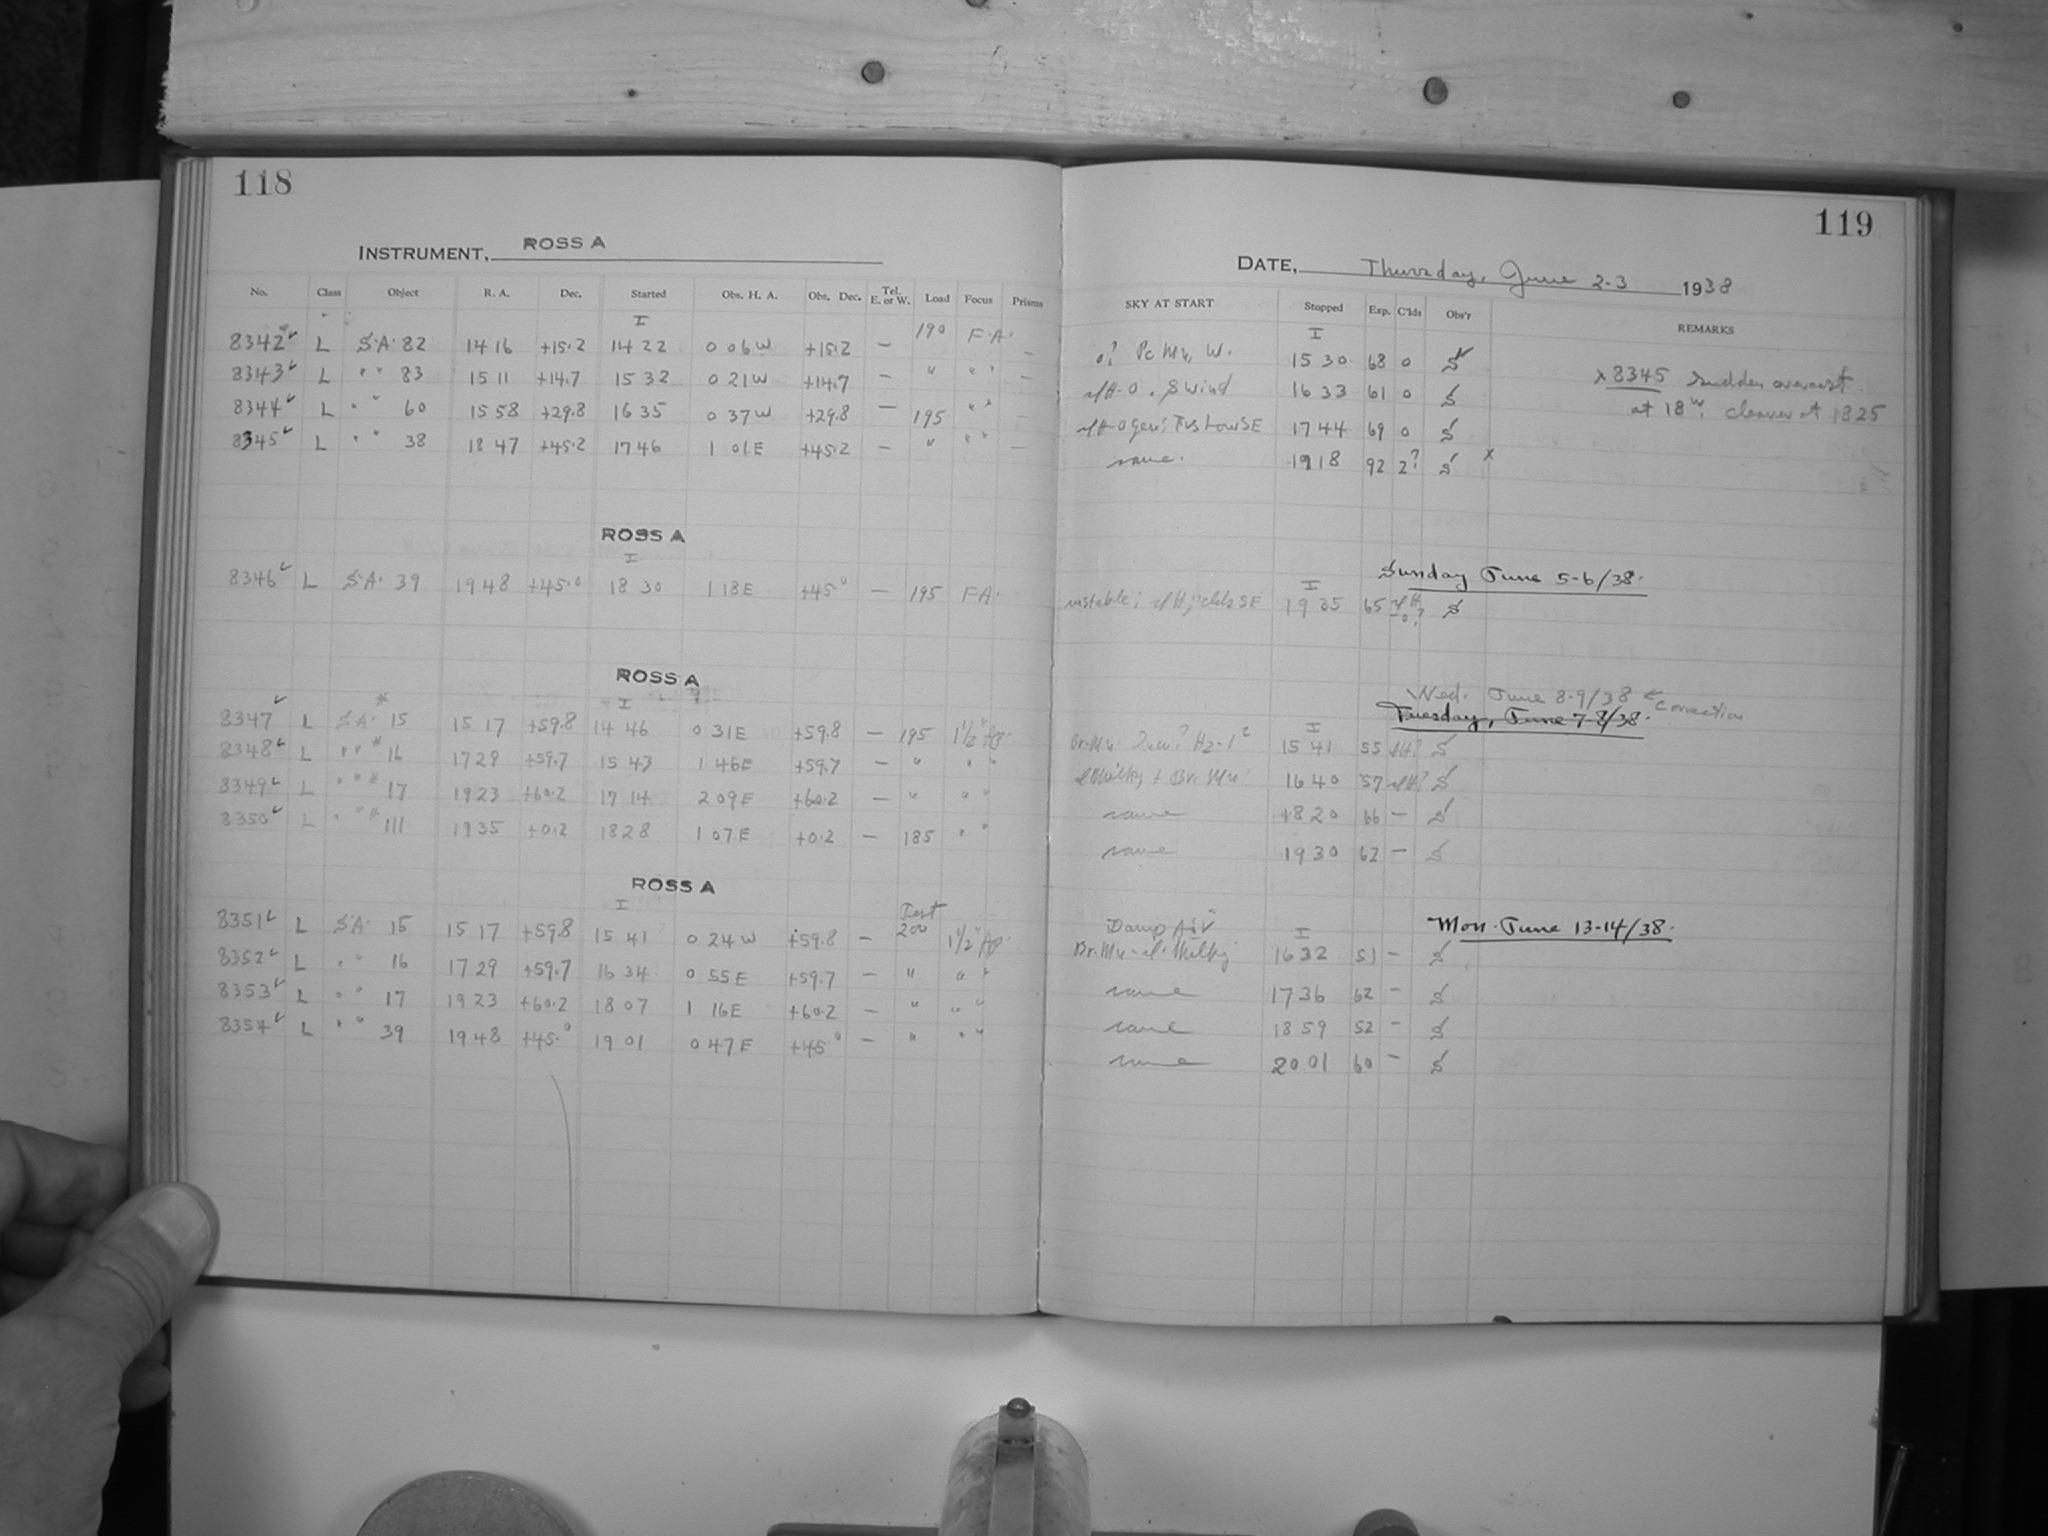 118
INSTRUMENT, ROSS A
No. Class Object R. A. Dec. Started Obs. H. A. Obs. Dec. Tel. E. or W. Load Focus Prisms
I
8342 L S.A. 82 14 16 +15.2 14 22 0 06 W +15.2 — 190 F.A. —
8343 L " " 83 15 11 +14.7 15 32 0 21 W +14.7 — " " " —
8344 L " " 60 15 58 +29.8 16 35 0 37 W +29.8 — 195 " " —
8345 L " " 38 18 47 +45.2 17 46 1 01 E +45.2 — " " " —
ROSS A
I
8346 L S.A. 39 19 48 +45.0 18 30 1 18 E +45.0 — 195 F.A.
ROSS A
I
8347 L S.A. * 15 15 17 +59.8 14 46 0 31 E +59.8 — 195 1½" Ap.
8348 L " " * 16 17 29 +59.7 15 43 1 46 E +59.7 — " " "
8349 L " " * 17 19 23 +60.2 17 14 2 09 E +60.2 — " " "
8350 L " " * 111 19 35 +0.2 18 28 1 07 E +0.2 — 185 " "
ROSS A
I
8351 L S.A. 15 15 17 +59.8 15 41 0 24 W +59.8 — Test 200 1½" Ap.
8352 L " " 16 17 29 +59.7 16 34 0 55 E +59.7 — " " "
8353 L " " 17 19 23 +60.2 18 07 1 16 E +60.2 — " " "
8354 L " " 39 19 48 +45.0 19 01 0 47 E +45.0 — " " "
119
DATE, Thursday, June 2-3 1938
SKY AT START Stopped Exp. C'lds Obs'r REMARKS
I
0? W. 15 30 68 0 S
S wind 16 33 61 0 S
Low SE 17 44 69 0 S
same. 19 18 92 2? S x
x 8345 sudden overcast
at 18 clearer at 1825
Sunday June 5-6/38.
I
unstable; SE 19 35 65 S
Wed. June 8-9/38 ← correction
Tuesday, June 7-8/38.
I
Br. Mn. 15 41 55 S
Milky + Br. Mn. 16 40 57 S
same 18 20 66 — S
same 19 30 62 — S
Mon. June 13-14/38.
Damp Air I
Br. Mn. Milky 16 32 51 — S
same 17 36 62 — S
same 18 59 52 — S
same 20 01 60 — S